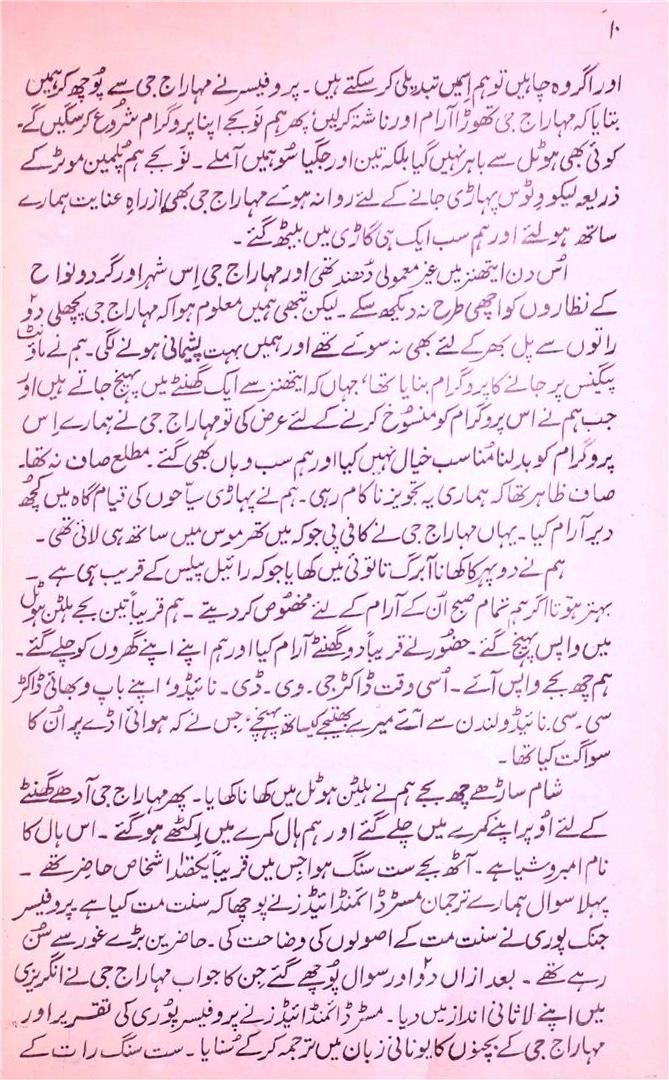 ۱۰
اور اگر وہ چاہیں تو ہم اسمیں تبدیلی کر سکتے ہیں۔ پروفیسر نے مہاراج جی سے پوچھ کر ہمیں
بتایا کہ مہاراج جی تھوڑا آرام اور ناشتہ کرلیں، پھر ہم نو بجے اپنا پروگرام شروع کر سکیں گے۔
کوئی بھی ہوٹل سے باہر نہیں گیا بلکہ تین اور جگیاسو ہمیں آملے۔ نو بجے ہم پُلمین موٹر کے
ذریعہ لیکووِٹوس پہاڑی جانے کے لئے روانہ ہوئے مہاراج جی بھی ازراہِ عنایت ہمارے
ساتھ ہو لئے اور ہم سب ایک ہی گاڑی میں بیٹھ گئے۔
اُس دن ایتھنز میں غیر معمولی دُھند تھی اور مہاراج جی اِس شہر اور گرد و نواح
کے نظاروں کو اچھی طرح نہ دیکھ سکے۔ لیکن تبھی ہمیں معلوم ہوا کہ مہاراج جی پچھلی دو
راتوں سے پل بھر کے لئے بھی نہ سوئے تھے اور ہمیں بہت پشیمانی ہونے لگی۔ ہم نے ماؤنٹ
پیگنس پر جانے کا پروگرام بنایا تھا، جہاں کہ ایتھنز سے ایک گھنٹے میں پہنچ جاتے ہیں اور
جب ہم نے اس پروگرام کو منسُوخ کرنے کے لئے عرض کی تو مہاراج جی نے ہمارے اِس
پروگرام کو بدلنا مُناسب خیال نہیں کیا اور ہم سب وہاں بھی گئے۔ مطلع صاف نہ تھا۔
صاف ظاہر تھا کہ ہماری یہ تجویز ناکام رہی۔ ہم نے پہاڑی سیاحوں کی قیام گاہ میں کچھ
دیر آرام کیا۔ یہاں مہاراج جی نے کافی پی جو کہ میں تھرموس میں ساتھ ہی لائی تھی۔
ہم نے دوپہر کا کھانا آبرگ تاتوئی میں کھایا جو کہ رائیل پیلس کے قریب ہی ہے۔
بہتر ہوتا اگر ہم تمام صبح اُن کے آرام کے لئے مخصُوص کر دیتے۔ ہم قریباً تین بجے ہلٹن ہوٹل
میں واپس پہنچ گئے۔ حضُور نے قریباً دو گھنٹے آرام کیا اور ہم اپنے اپنے گھروں کو چلے گئے۔
ہم چھ بجے واپس آئے۔ اُسی وقت ڈاکٹر جی۔ وی۔ ڈی۔ نائیڈو، اپنے باپ و بھائی ڈاکٹر
سی۔ سی۔ نائیڈو لندن سے آئے میرے بھتیجے کیساتھ پہنچے، جس نے کہ ہوائی اڈے پر اُن کا
سواگت کیا تھا۔
شام ساڑھے چھ بجے ہم نے ہلٹن ہوٹل میں کھانا کھایا۔ پھر مہاراج جی آدھے گھنٹے
کے لئے اُوپر اپنے کمرے میں چلے گئے اور ہم ہال کمرے میں اِکٹھے ہو گئے۔ اس ہال کا
نام امبروشیا ہے۔ آٹھ بجے ست سنگ ہوا جس میں قریباً یکصد اشخاص حاضر تھے۔
پہلا سوال ہمارے ترجمان مسٹر ڈائمنڈائیڈز نے پوچھا کہ سنت مت کیا ہے پروفیسر
جنک پوری نے سنت مت کے اصولوں کی وضاحت کی۔ حاضرین بڑے غور سے سُن
رہے تھے۔ بعد ازاں دو اور سوال پُوچھے گئے جن کا جواب مہاراج جی نے انگریزی
میں اپنے لاثانی انداز میں دیا۔ مسٹر ڈائمنڈائیڈز نے پروفیسر پُوری کی تقریر اور
مہاراج جی کے بچنوں کا یونانی زبان میں ترجمہ کر کے سُنایا۔ ست سنگ رات کے